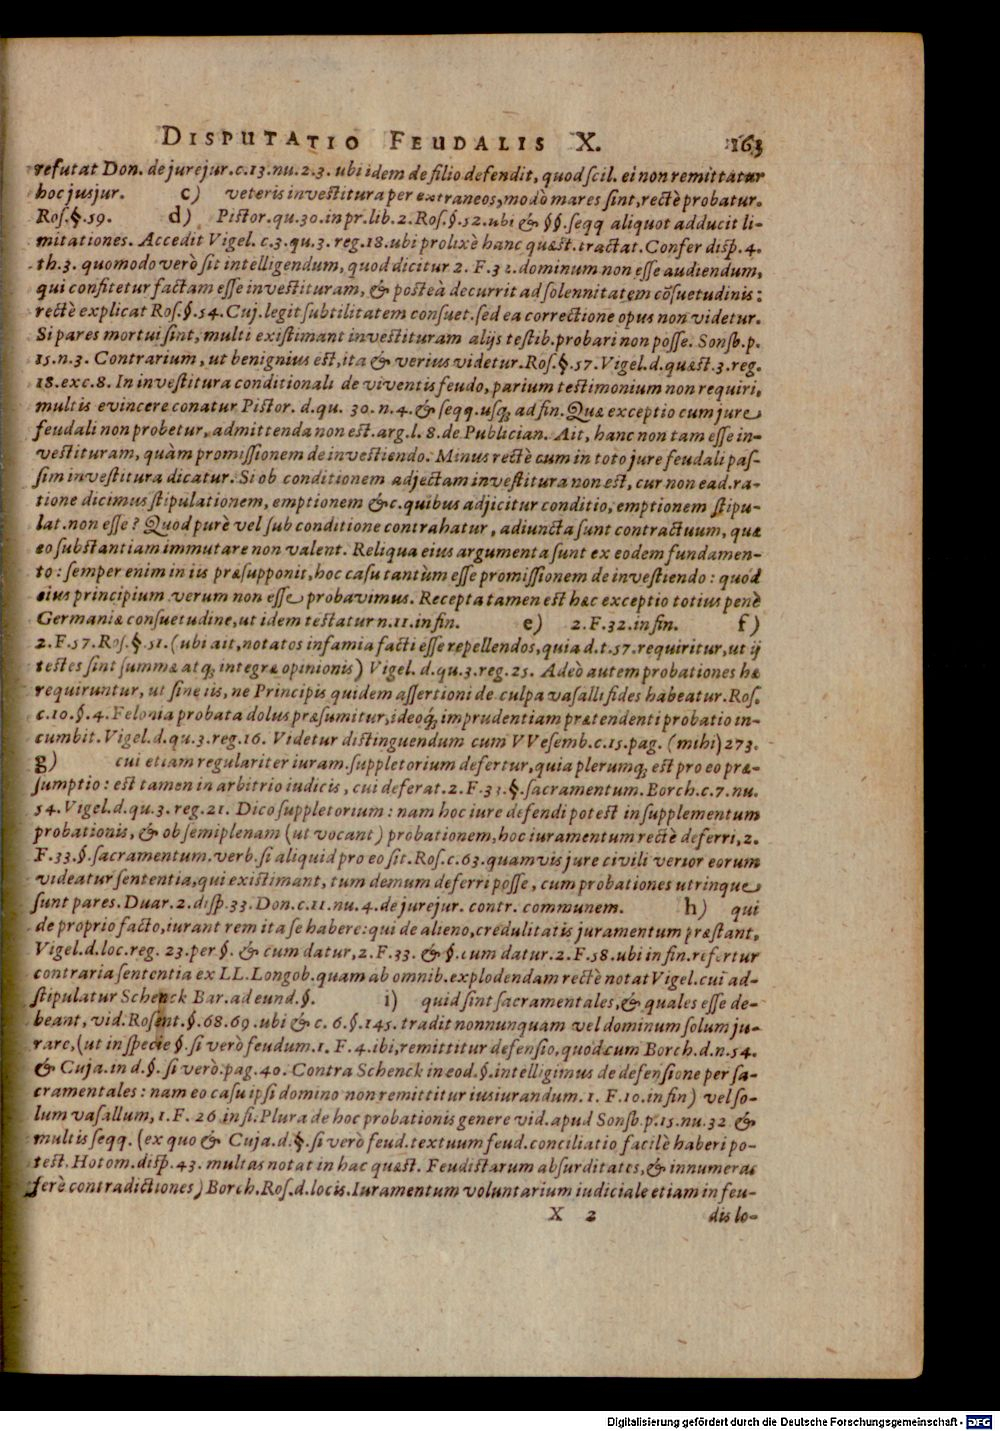 DISPUTATIO FEUDALIS X. 163
refutat Don. de jurejur.c.13.nu.2.3. ubi idem de filio defendit, quod scil. ei non remittatur
hoc jusjur. c) veteris investitura per extraneos, modò mares sint, rectè probatur.
Ros.§.59. d) Pistor.qu.30.in pr.lib.2. Ros.§.52.ubi & §§.seqq aliquot adducit li-
mitationes. Accedit Vigel. c.3.qu.3. reg.18.ubi prolixè hanc quæst.tractat. Confer disp.4.
th.3. quomodo verò sit intelligendum, quod dicitur 2. F.32.dominum non esse audiendum,
qui confitetur factam esse investituram, & posteà decurrit ad solennitatem cõsuetudinis:
rectè explicat Ros.§.54. Cuj.legit subtilitatem consuet.sed ea correctione opus non videtur.
Si pares mortui sint, multi existimant investituram alijs testib.probari non posse. Sonsb.p.
15.n.3. Contrarium, ut benignius est, ita & verius videtur.Ros.§.57.Vigel.d.quæst.3.reg.
18.exc.8. In investitura conditionali de viventis feudo, parium testimonium non requiri,
multis evincere conatur Pistor. d.qu. 30.n.4.& seqq.usq; ad fin. Quæ exceptio cum jure
feudali non probetur, admittenda non est.arg.l. 8.de Publician. Ait, hanc non tam esse in-
vestituram, quàm promissionem de investiendo. Minus rectè cum in toto jure feudali pas-
sim investitura dicatur. Si ob conditionem adjectam investitura non est, cur non ead.ra-
tione dicimus stipulationem, emptionem &c.quibus adjicitur conditio, emptionem stipu-
lat.non esse? Quod purè vel sub conditione contrahatur, adiuncta sunt contractuum, quæ
eo substantiam immutare non valent. Reliqua eius argumenta sunt ex eodem fundamen-
to: semper enim in iis præsupponit, hoc casu tantùm esse promissionem de investiendo: quod
eius principium verum non esse probavimus. Recepta tamen est hæc exceptio totius penè
Germaniæ consuetudine, ut idem testatur n.11.in fin. e) 2.F.32.in fin. f)
2.F.57.Ros.§.51.(ubi ait, notatos infamia facti esse repellendos, quia d.t.57.requiritur, ut ij
testes sint summæ atq; integræ opinionis) Vigel. d.qu.3.reg.25. Adeò autem probationes hæ
requiruntur, ut sine iis, ne Principis quidem assertioni de culpa vasalli fides habeatur. Ros.
c.10.§.4. Felonia probata dolus præsumitur, ideoq; imprudentiam prætendenti probatio in-
cumbit. Vigel.d.qu.3.reg.16. Videtur distinguendum cum VVesemb.c.15.pag. (mihi) 273.
g) cui etiam regulariter iuram.suppletorium defertur, quia plerumq; est pro eo præ-
sumptio: est tamen in arbitrio iudicis, cui deferat.2.F.33.§.sacramentum.Borch.c.7.nu.
54.Vigel.d.qu.3.reg.21. Dico suppletorium: nam hoc iure defendi potest in supplementum
probationis, & ob semiplenam (ut vocant) probationem, hoc iuramentum rectè deferri, 2.
F.33.§.sacramentum.verb.si aliquid pro eo sit.Ros.c.63.quamvis jure civili verior eorum
videatur sententia, qui existimant, tum demum deferri posse, cum probationes utrinque
sunt pares. Duar.2.disp.33.Don.c.11.nu.4.de jurejur. contr. communem. h) qui
de proprio facto, iurant rem ita se habere: qui de alieno, credulitatis juramentum præstant,
Vigel.d.loc.reg. 23.per §. & cum datur, 2.F.33. & §.cum datur.2.F.58.ubi in fin.refertur
contraria sententia ex LL.Longob.quam ab omnib.explodendam rectè notat Vigel.cui ad-
stipulatur Schenck Bar.ad eund.§. i) quid sint sacramentales, & quales esse de-
beant, vid.Rosent.§.68.69.ubi & c. 6.§.145.tradit nonnunquam vel dominum solum ju-
rare, (ut in specie §.si verò feudum.1. F.4.ibi, remittitur defensio, quod cum Borch.d.n.54.
& Cuja.in d.§.si verò.pag.40. Contra Schenck in eod.§.intelligimus de defensione per sa-
cramentales: nam eo casu ipsi domino non remittitur iusiurandum.1. F.10.in fin) vel so-
lum vasallum, 1.F. 26 in fi.Plura de hoc probationis genere vid.apud Sonsb.p.15.nu.32 &
multis seqq. (ex quo & Cuja.d.§.si verò feud.textuum feud.conciliatio facilè haberi po-
test. Hotom.disp.43. multas notat in hac quæst. Feudistarum absurditates, & innumeras
ferè contradictiones) Borch.Ros.d.locis.Iuramentum voluntarium iudiciale etiam in feu-
X 2 dis lo-
Digitalisierung gefördert durch die Deutsche Forschungsgemeinschaft - DFG